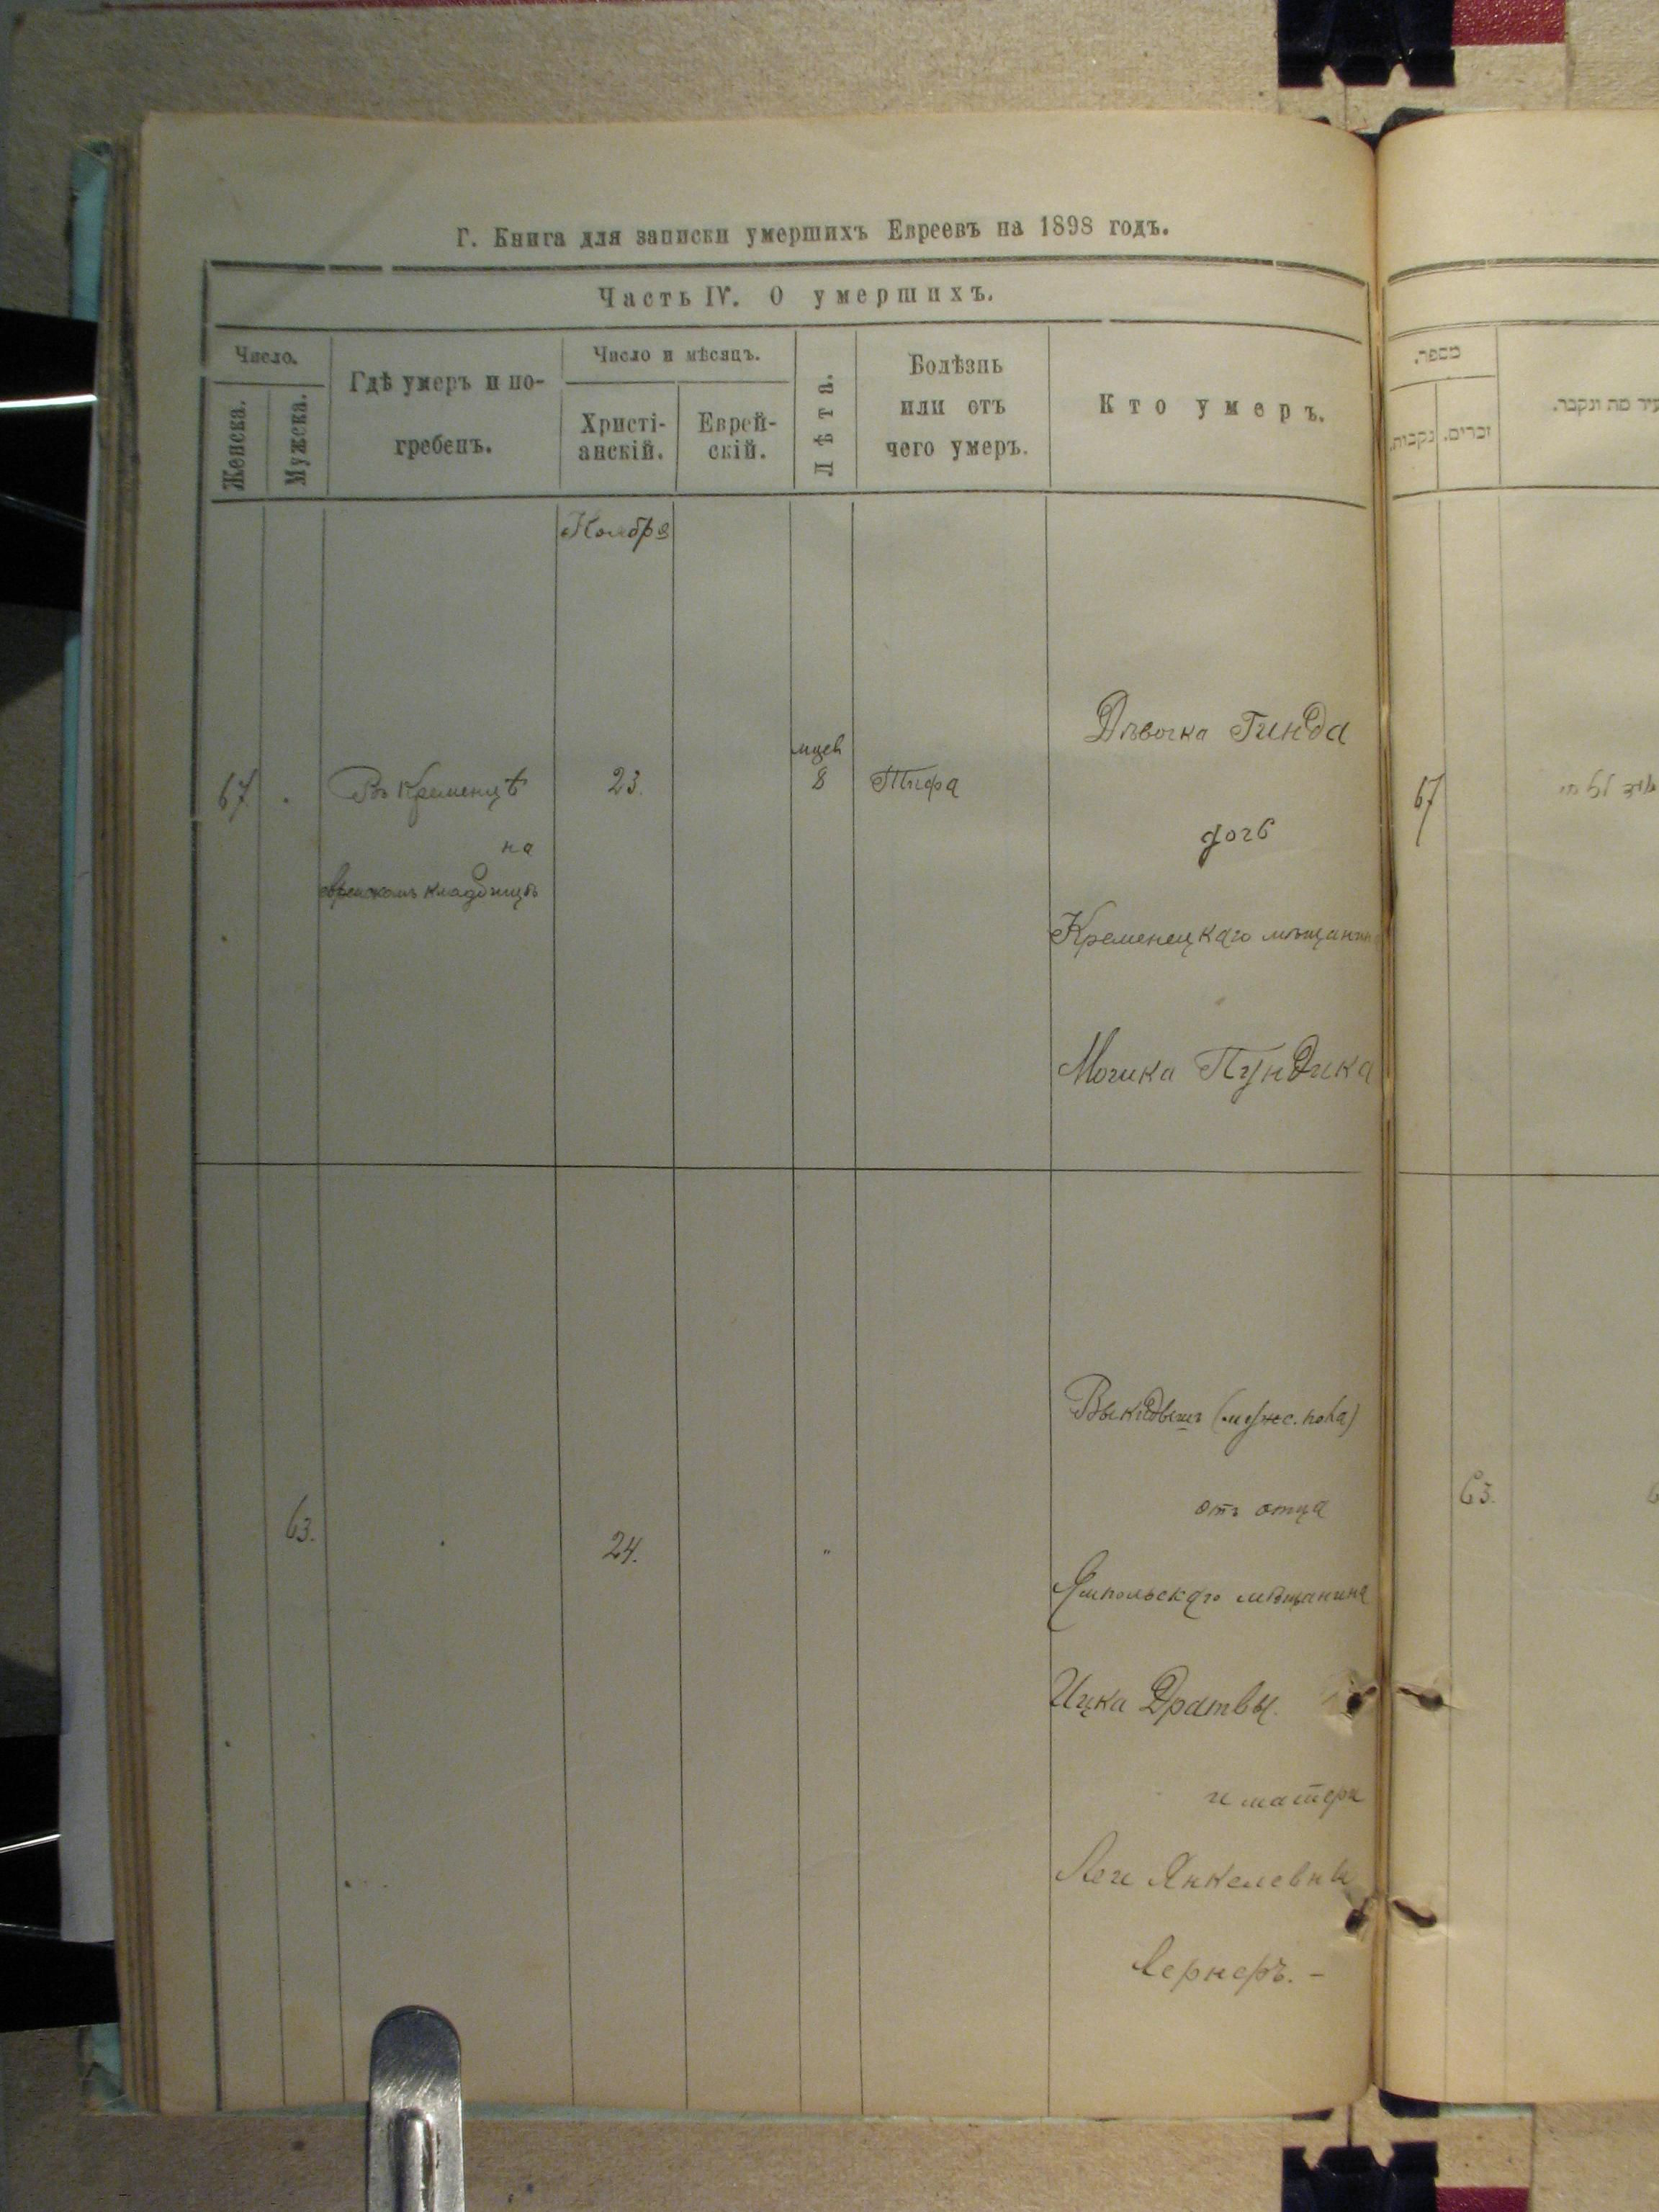 Г. Книга для записки умершихъ Евреевъ на 1898 годъ.
Часть IV. О умершихъ.
Число.
Женска.
Мужска.
Гдѣ умеръ и по-
гребенъ.
Число и мѣсяцъ.
Христі-
анскій.
Еврей-
скій.
Лѣта.
Болѣзнь
или отъ
чего умеръ.
Кто умеръ.
Ноября
67.
Въ Кременцѣ
на
еврейскомъ кладбищѣ
23.
мцев
8
Тифа
Дѣвочка Гинда
дочь
Кременецкаго мѣщанина
Мошка Пундика
63.
24.
"
Выкидышъ (мужс. пола)
отъ отца
Ямпольскаго мѣщанина
Ицка Дратвы.
и матери
Леи Янкелевны
Лернеръ. -
מספר.
נקבות.
זכרים.
67
63.